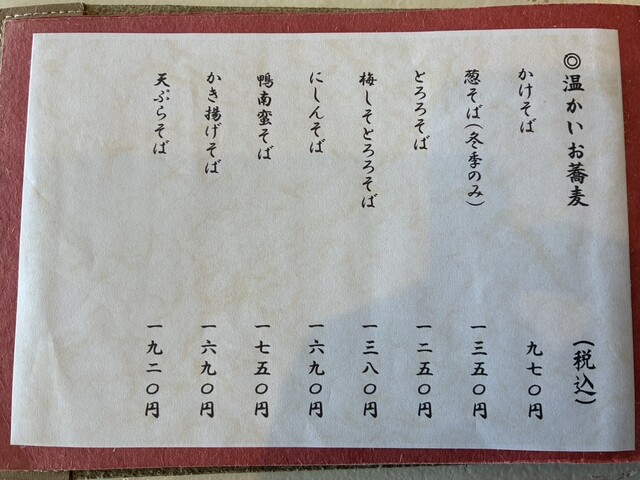 ◎温かいお蕎麦 (税込)
かけそば 九七〇円
葱そば(冬季のみ) 一三五〇円
とろろそば 一二五〇円
梅しそとろろそば 一三八〇円
にしんそば 一六九〇円
鴨南蛮そば 一七五〇円
かき揚げそば 一六九〇円
天ぷらそば 一九二〇円